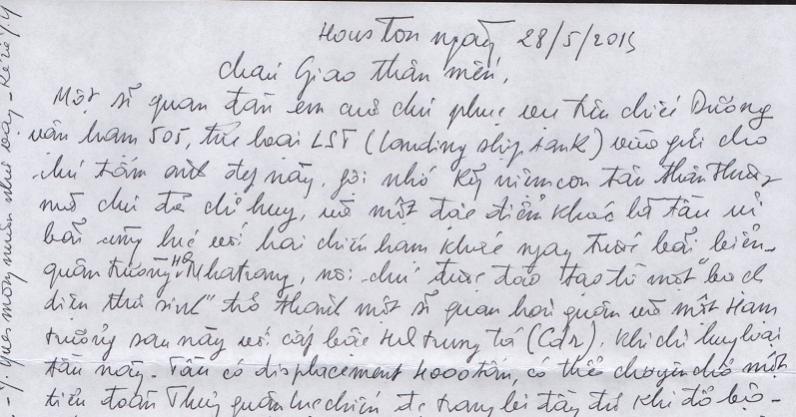 Houston ngày 28/5/2015
cháu Giao thân mến,
Một sĩ quan đàn em cuả chú phục vụ trên chiếc Dương
vân hạm 505, thuộc loại LST (landing ship tank) vừa gửi cho
chú tấm ảnh đẹp này, gợi nhớ kỷ niệm con tàu thân thương
mà chú đã chỉ huy, và một đặc điểm khác là tàu ủi
bãi cùng lúc với hai chiến hạm khác ngay trước bãi biển
quân trường HQ Nhatrang, nơi chú được đào tạo từ một "bạch
diện thư sinh" trở thành một sĩ quan hải quân và một Hạm
trưởng sau này với cấp bậc HQ trung tá (Cdr), khi chỉ huy loại
tàu này. Tàu có displacement 4000 tấn, có thể chuyên chở một
tiểu đoàn Thủy quân lục chiến trang bị đầy đủ khi đổ bộ -
muốn như vậy -